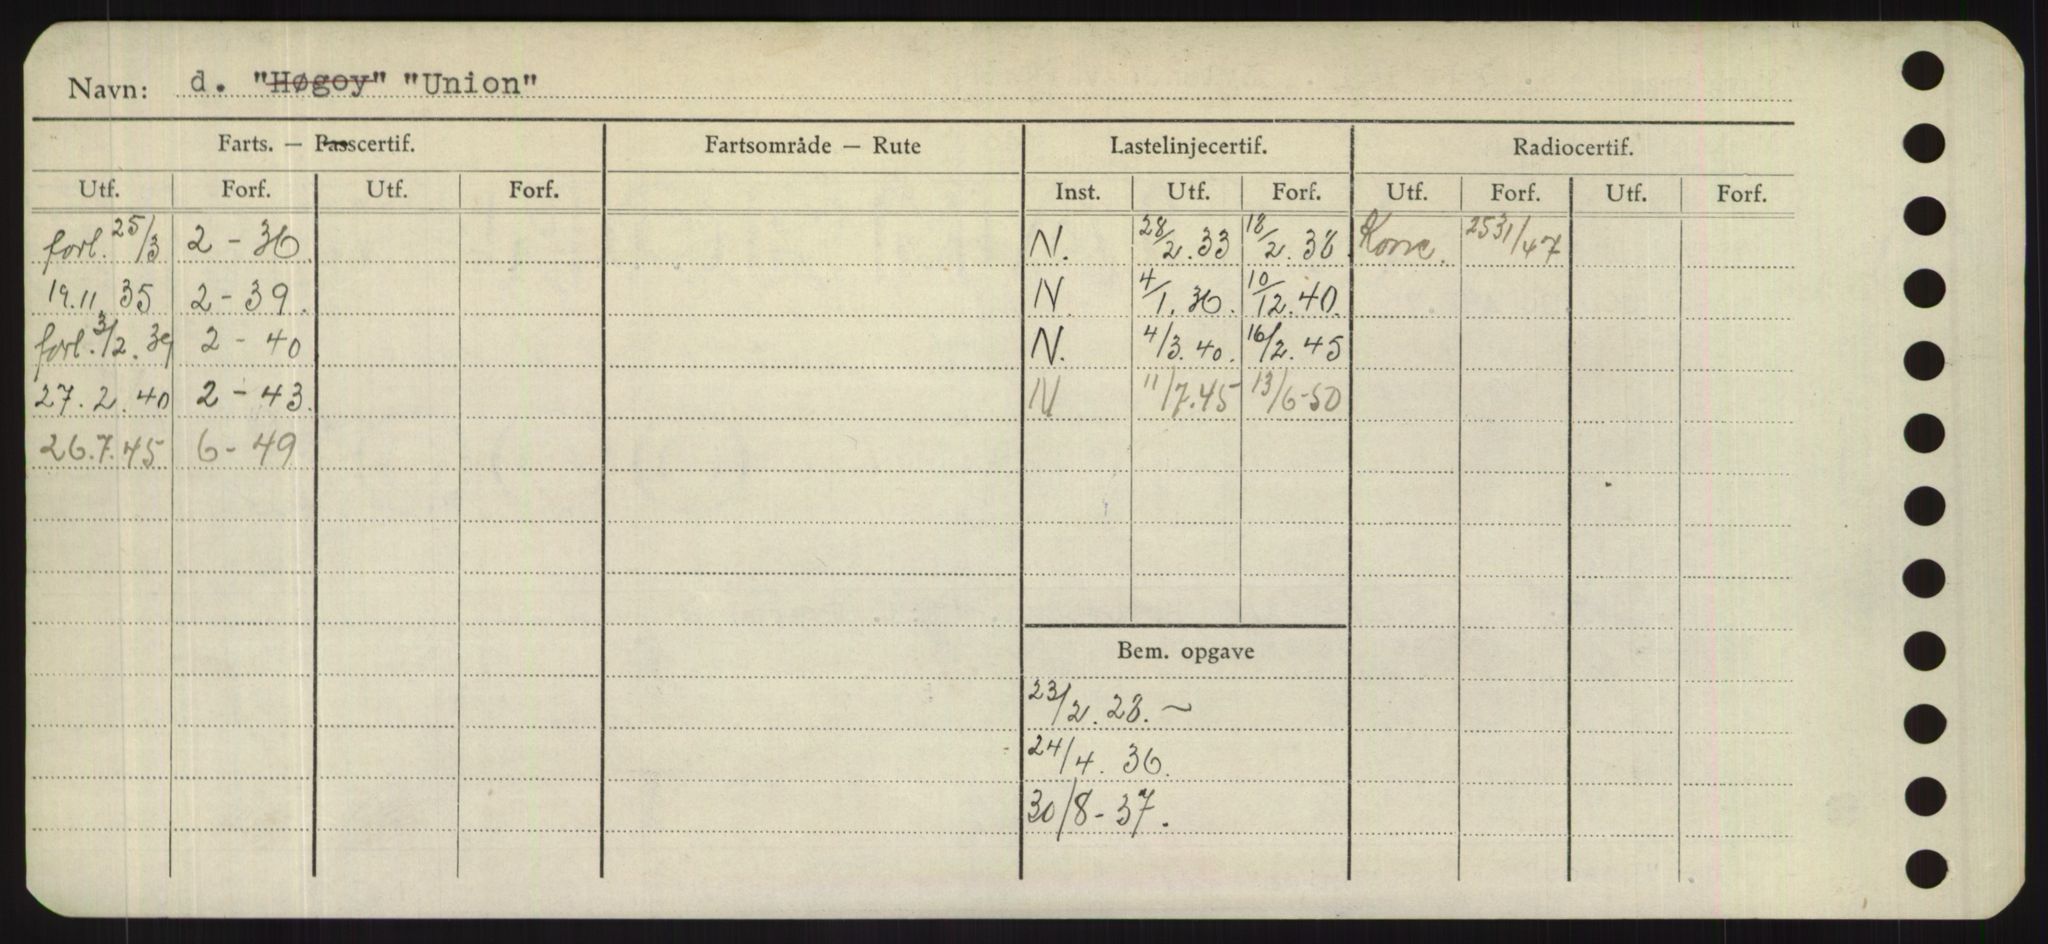 Navn: d. "Høgoy" "Union"
Farts. — Passcertif. Fartsområde — Rute Lastelinjecertif. Radiocertif.
Utf. Forf. Utf. Forf. Inst. Utf. Forf. Utf. Forf. Utf. Forf.
forl. 25/3 2 - 36. N. 28/2. 33 18/2. 38. 2531/47
19.11 35 2 - 39. N. 4/1. 36. 10/12. 40.
forl. 3/2. 39 2 - 40 N. 4/3. 40. 16/2. 45
27. 2. 40 2 - 43. N 11/7. 45 13/6-50
26.7.45 6 - 49
Bem. opgave
23/2. 28. ~
24/4. 36.
30/8 - 37.